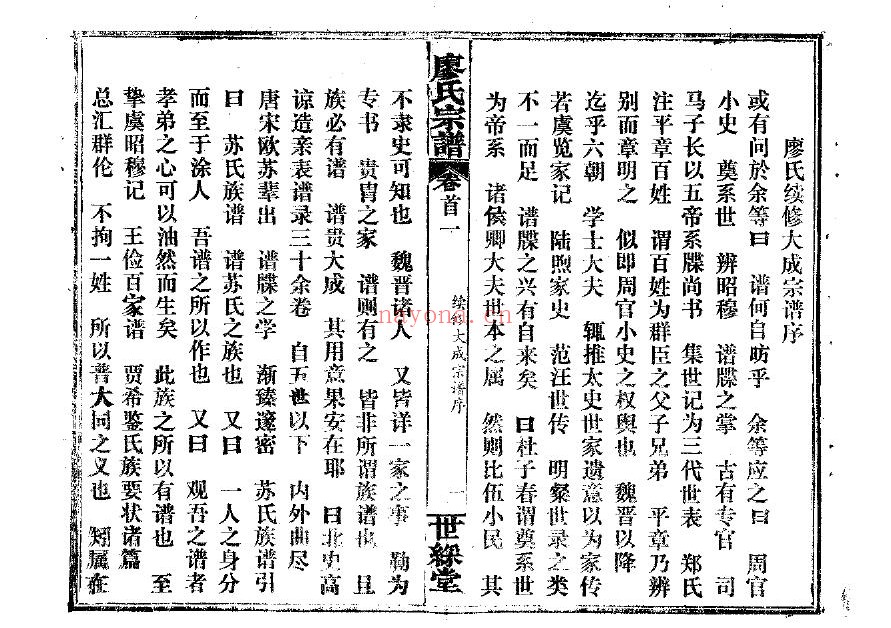 廖氏续修大成宗谱序
或有问於余等曰 谱何自昉乎 余等应之曰 周官
小史 奠系世 辨昭穆 谱牒之掌 古有专官 司
马子长以五帝系牒尚书 集世记为三代世表 郑氏
注平章百姓 谓百姓为群臣之父子兄弟 平章乃辨
别而章明之 似即周官小史之权舆也 魏晋以降
迄乎六朝 学士大夫 辄推太史世家遗意以为家传
若虞览家记 陆煦家史 范汪世传 明粲世录之类
不一而足 谱牒之兴有自来矣 曰杜子春谓奠系世
为帝系 诸侯卿大夫世本之属 然则比伍小民 其
廖氏宗譜
卷首一
续修大成宗谱序
一
世綵堂
不隶史可知也 魏晋诸人 又皆详一家之事 勒为
专书 贵胄之家 谱则有之 皆非所谓族谱也 且
族必有谱 谱贵大成 其用意果安在耶 曰北史高
谅造亲表谱录三十余卷 自五世以下 内外曲尽
唐宋欧苏辈出 谱牒之学 渐臻邃密 苏氏族谱引
曰 苏氏族谱 谱苏氏之族也 又曰 一人之身分
而至于涂人 吾谱之所以作也 又曰 观吾之谱者
孝弟之心可以油然而生矣 此族之所以有谱也 至
挚虞昭穆记 王俭百家谱 贾希鉴氏族要状诸篇
总汇群伦 不拘一姓 所以普大同之义也 矧属在
nayona.cn